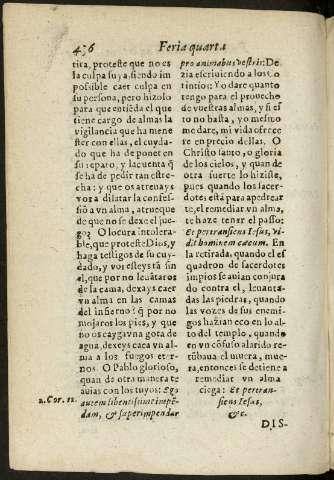 436
Feria quarta
tira, proteste que no es
la culpa suya, siendo im
possible caer culpa en
su persona, pero hizolo
para que entiẽda el que
tiene cargo de almas la
vigilancia que ha mene
ster con ellas, el cuyda-
do que ha de poner en
su reparo, y la cuenta q̃
se ha de pedir tan estre-
cha: y que os atreuays
vos a dilatar la confes-
siõ a vn alma, atrueque
de que no se dexe el jue-
go? O locura intolera-
ble, que proteste Dios, y
haga testigos de su cuy-
dado, y vos esteys tã sin
el, que por no leuãtaros
de la cama, dexays caer
vn alma en las camas
del infierno? q̃ por no
mojaros los pies, y que
no os cayga vna gota de
agua, dexeys caea vn al-
ma a los fuegos eter-
nos. O Pablo glorioso,
quan de otra manera te
auias con los tuyos: Ego
2. Cor. 12.
autem libentissime impẽ-
dam, & superimpendar
pro animabus vestris: De
zia escriuiendo a los Co
rintios: Yo dare quanto
tengo para el prouecho
de vuestras almas, y si es
to no basta, yo mesmo
me dare, mi vida ofrece
re en precio dellas. O
Christo santo, o gloria
de los cielos, y quan de
otra suerte lo hiziste,
pues quando los sacer-
dotes estã para apedrear
te, el remediar vn alma,
te haze tener el passo:
Et pertransiens Iesus, vi-
dit hominem cæcum. En
la retirada, quando el es
quadron de sacerdotes
impios se auian conjura
do contra el, leuanta-
das las piedras, quando
las vozes de sus enemi
gos hazian eco en lo al-
to del templo, quando
en vn cõfuso alarido re-
tũbaua el muera, mue-
ra, entonces se detiene a
remediar vn alma
ciega: Et pertran-
siens Iesus,
&c.
DIS-